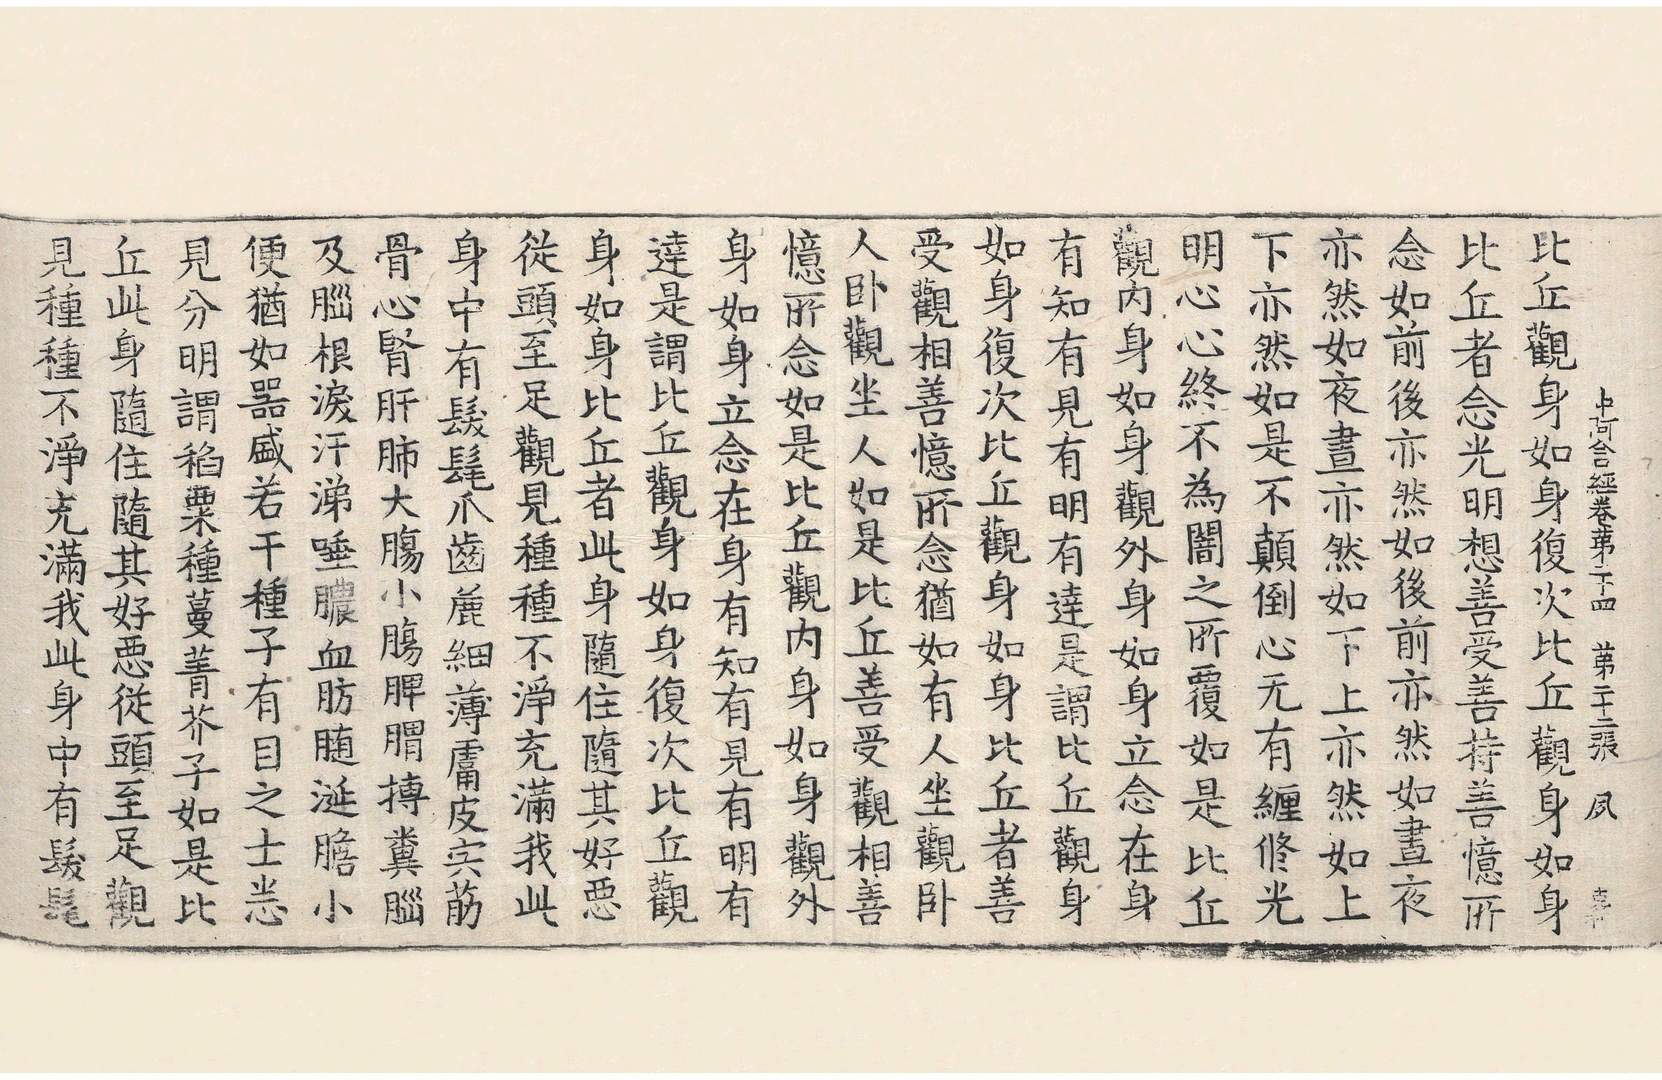 中阿含經卷第二十四　第二十二張　夙
比丘觀身如身復次比丘觀身如身
比丘者念光明想善受善持善憶所
念如前後亦然如後前亦然如晝夜
亦然如夜晝亦然如下上亦然如上
下亦然如是不顛倒心无有纏修光
明心心終不為闇之所覆如是比丘
觀內身如身觀外身如身立念在身
有知有見有明有達是謂比丘觀身
如身復次比丘觀身如身比丘者善
受觀相善憶所念猶如有人坐觀卧
人卧觀坐人如是比丘善受觀相善
憶所念如是比丘觀內身如身觀外
身如身立念在身有知有見有明有
達是謂比丘觀身如身復次比丘觀
身如身比丘者此身隨住隨其好惡
従頭至足觀見種種不淨充滿我此
身中有髮髦爪齒麁細薄膚皮宍荕
骨心腎肝肺大膓小膓脾胃摶糞腦
及腦根淚汗涕唾膿血肪髄涎膽小
便猶如器盛若干種子有目之士悉
見分明謂稻粟種蔓菁芥子如是比
丘此身隨住隨其好惡従頭至足觀
見種種不淨充滿我此身中有髮髦